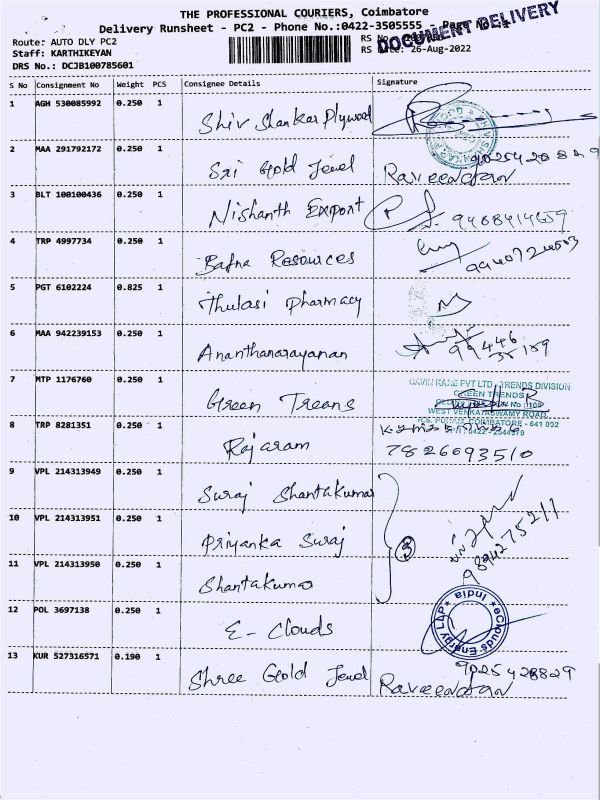 THE PROFESSIONAL COURIERS, Coimbatore
Delivery Runsheet - PC2 - Phone No.:0422-3505555 - Page No.
DOCUMENT DELIVERY
Route: AUTO DLY PC2 RS No
Staff: KARTHIKEYAN RS Date: 26-Aug-2022
DRS No.: DCJB100785601
S No Consignment No Weight PCS Consignee Details Signature
1 AGH 530085992 0.250 1 Shiv Shankar Plywood
2 MAA 291792172 0.250 1 Sri Gold Jewel Raveendran 9025428829
3 BLT 100100436 0.250 1 Nishanth Export 9488414659
4 TRP 4997734 0.250 1 Bafna Resources
5 PGT 6102224 0.825 1 Thulasi Pharmacy
6 MAA 942239153 0.250 1 Ananthanarayanan
7 MTP 1176760 0.250 1 Green Treans
GAVIN KANE PVT LTD, TRENDS DIVISION
GREEN TRENDS
WEST VENKATASWAMY ROAD,
COIMBATORE - 641 002
8 TRP 8281351 0.250 1 Rajaram 7826093510
9 VPL 214313949 0.250 1 Suraj Shantakumar
10 VPL 214313951 0.250 1 Priyanka Suraj 3
11 VPL 214313950 0.250 1 Shantakumar
12 POL 3697138 0.250 1 E-Clouds
eClouds Energy LLP * India *
13 KUR 527316571 0.190 1 Shree Gold Jewel Raveendran 9025428829